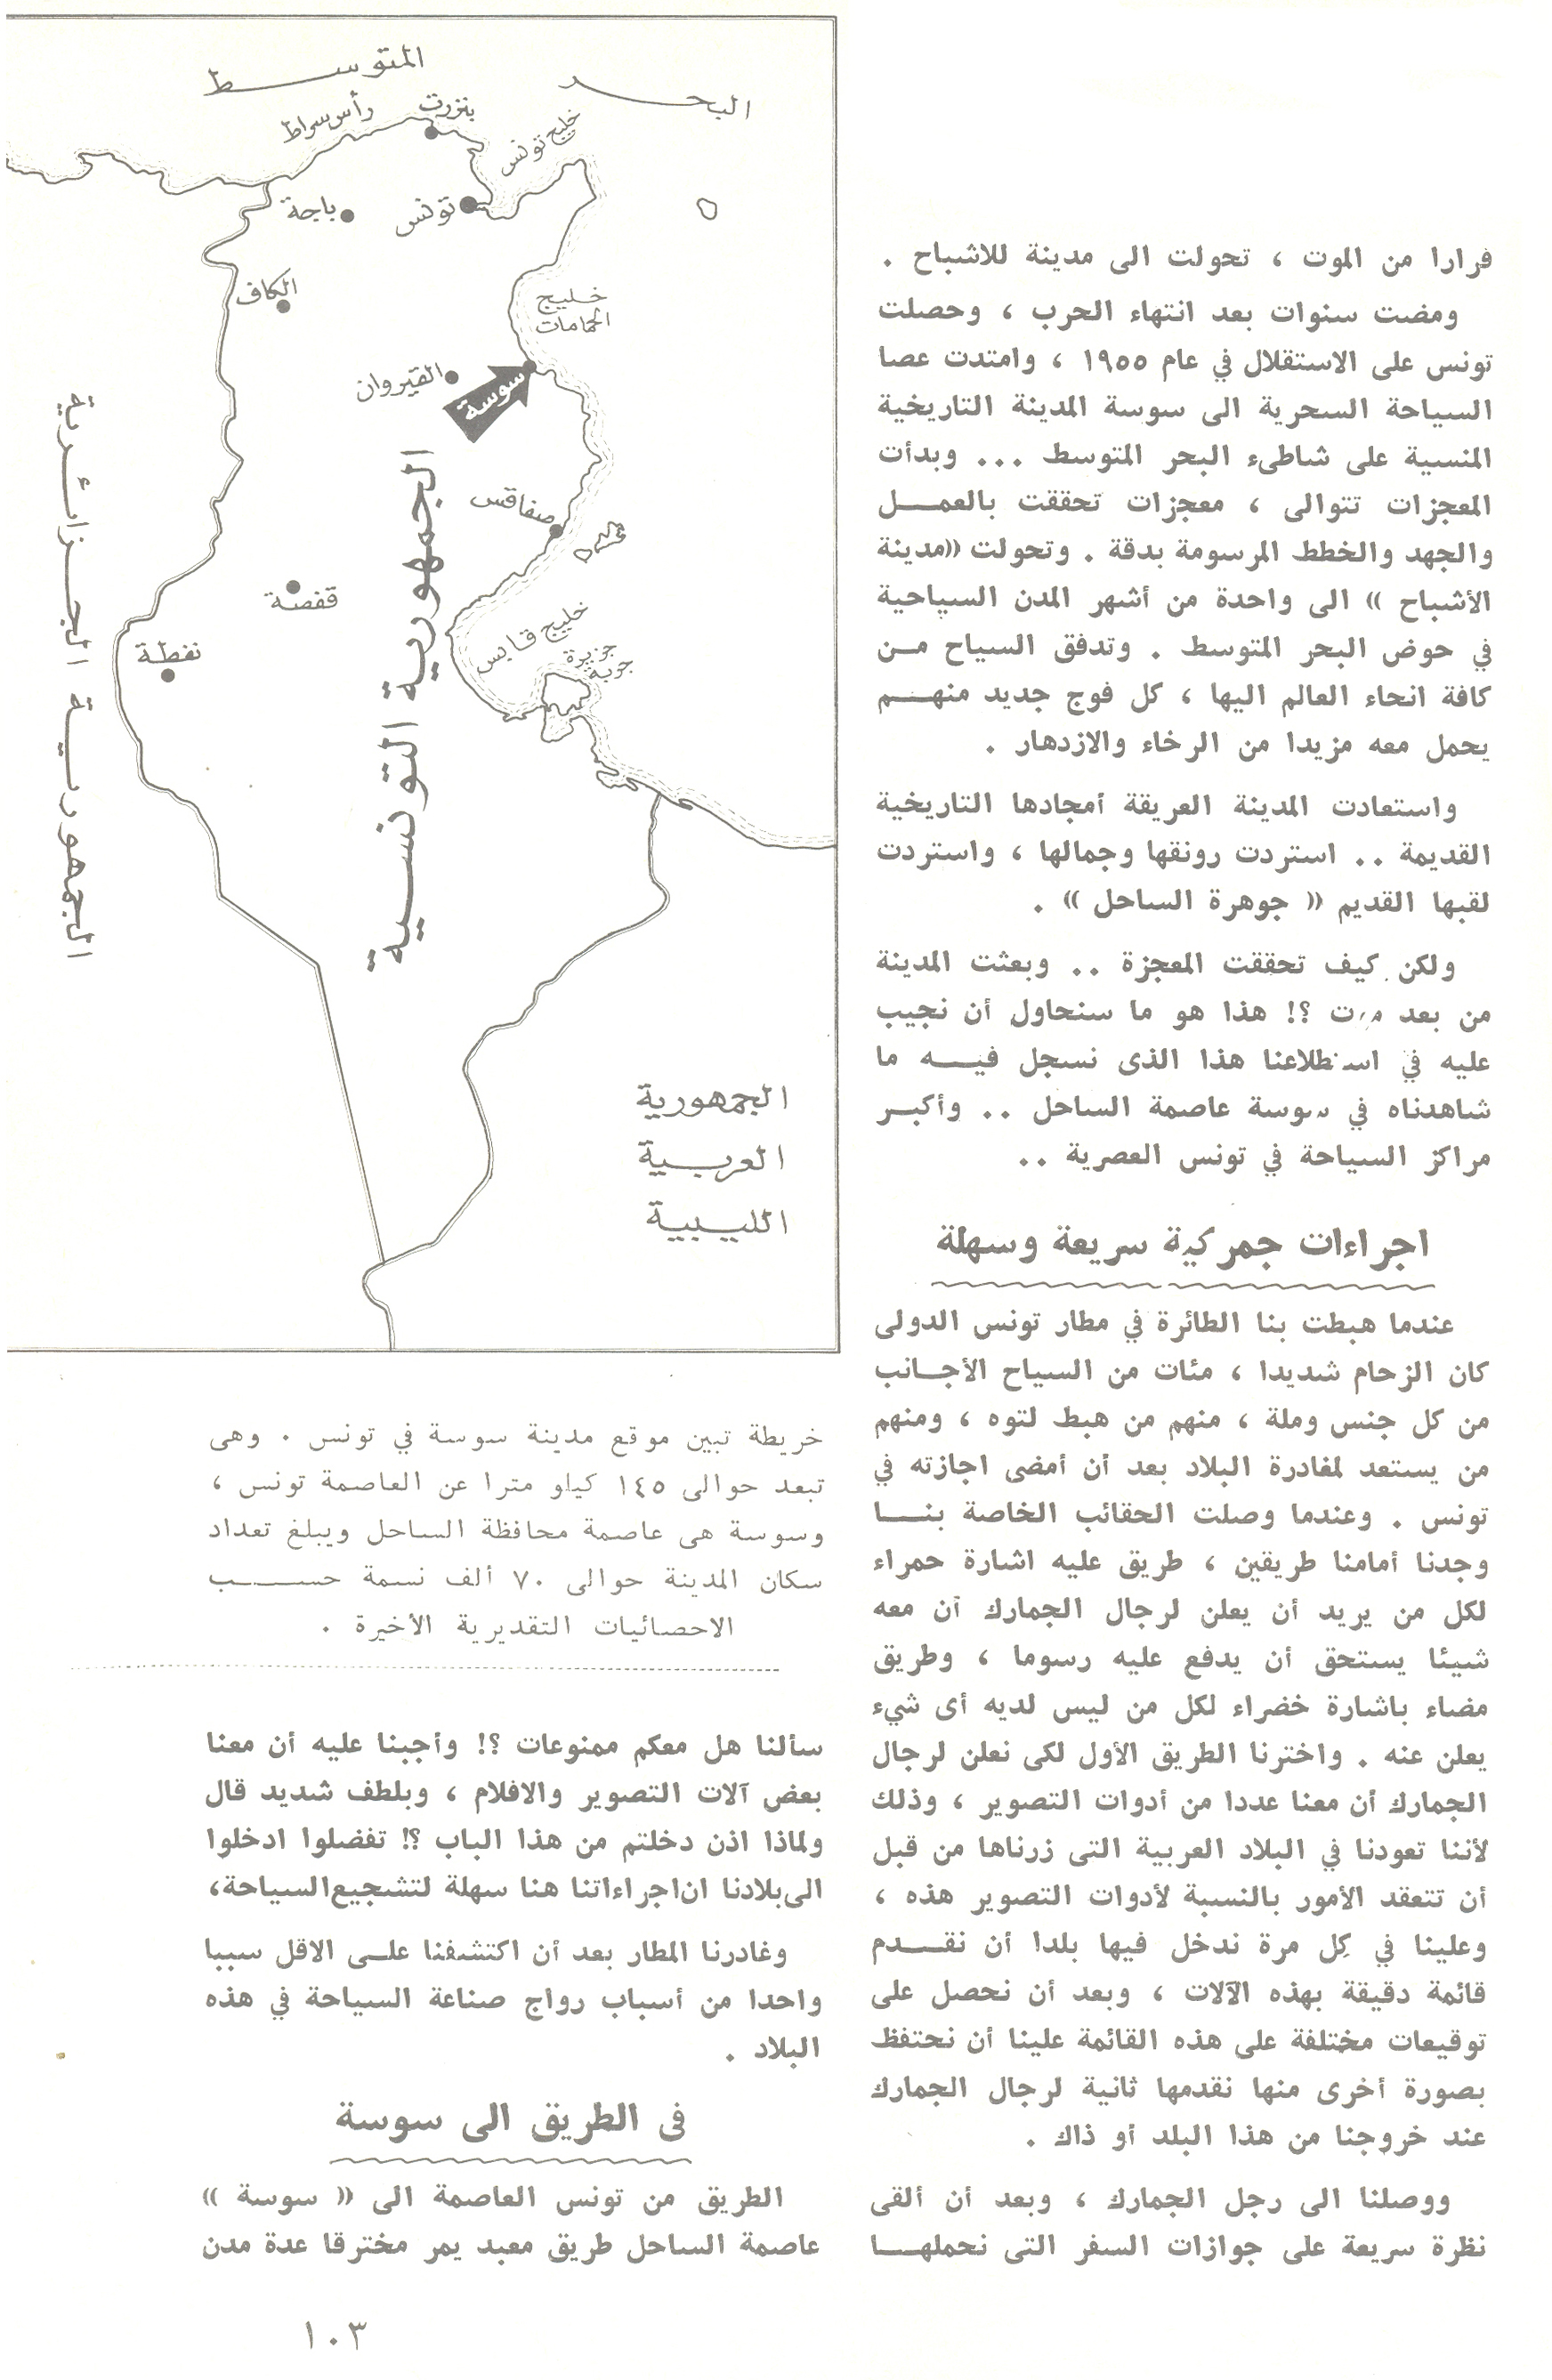 فرارا من الموت ، تحولت الى مدينة للاشباح .
ومضت سنوات بعد انتهاء الحرب ، وحصلت
تونس على الاستقلال في عام ١٩٥٥ ، وامتدت عصا
السياحة السحرية الى سوسة المدينة التاريخية
المنسية على شاطىء البحر المتوسط ... وبدأت
المعجزات تتوالى ، معجزات تحققت بالعمــل
والجهد والخطط المرسومة بدقة . وتحولت «مدينة
الأشباح » الى واحدة من أشهر المدن السياحية
في حوض البحر المتوسط . وتدفق السياح مــن
كافة انحاء العالم اليها ، كل فوج جديد منهــم
يحمل معه مزيدا من الرخاء والازدهار .
واستعادت المدينة العريقة أمجادها التاريخية
القديمة .. استردت رونقها وجمالها ، واستردت
لقبها القديم « جوهرة الساحل » .
ولكن كيف تحققت المعجزة .. وبعثت المدينة
من بعد موت ؟! هذا هو ما سنحاول أن نجيب
عليه في استطلاعنا هذا الذى نسجل فيــه ما
شاهدناه في سوسة عاصمة الساحل .. وأكبــر
مراكز السياحة في تونس العصرية ..
اجراءات جمركية سريعة وسهلة
عندما هبطت بنا الطائرة في مطار تونس الدولى
كان الزحام شديدا ، مئات من السياح الأجــانب
من كل جنس وملة ، منهم من هبط لتوه ، ومنهم
من يستعد لمغادرة البلاد بعد أن أمضى اجازته في
تونس . وعندما وصلت الحقائب الخاصة بنــا
وجدنا أمامنا طريقين ، طريق عليه اشارة حمراء
لكل من يريد أن يعلن لرجال الجمارك أن معه
شيئا يستحق أن يدفع عليه رسوما ، وطريق
مضاء باشارة خضراء لكل من ليس لديه أى شيء
يعلن عنه . واخترنا الطريق الأول لكى نعلن لرجال
الجمارك أن معنا عددا من أدوات التصوير ، وذلك
لأننا تعودنا في البلاد العربية التى زرناها من قبل
أن تتعقد الأمور بالنسبة لأدوات التصوير هذه ،
وعلينا في كل مرة ندخل فيها بلدا أن نقــدم
قائمة دقيقة بهذه الآلات ، وبعد أن نحصل على
توقيعات مختلفة على هذه القائمة علينا أن نحتفظ
بصورة أخرى منها نقدمها ثانية لرجال الجمارك
عند خروجنا من هذا البلد أو ذاك .
ووصلنا الى رجل الجمارك ، وبعد أن ألقى
نظرة سريعة على جوازات السفر التى نحملهــا
البحــر
المتوســط
خليج تونس
بنزرت
رأس سراط
تونس
باجة
الكاف
خليج
الحمامات
القيروان
سوسة
صفاقس
قفصة
نفطة
خليج قابس
جزيرة
جربة
الجمهورية التونسية
الجمهورية الجزائرية
الجمهورية
العربية
الليبية
خريطة تبين موقع مدينة سوسة في تونس . وهى
تبعد حوالى ١٤٥ كيلو مترا عن العاصمة تونس ،
وسوسة هى عاصمة محافظة الساحل ويبلغ تعداد
سكان المدينة حوالى ٧٠ ألف نسمة حســب
الاحصائيات التقديرية الأخيرة .
سألنا هل معكم ممنوعات ؟! وأجبنا عليه أن معنا
بعض آلات التصوير والافلام ، وبلطف شديد قال
ولماذا اذن دخلتم من هذا الباب ؟! تفضلوا ادخلوا
الى بلادنا ان اجراءاتنا هنا سهلة لتشجيع السياحة،
وغادرنا المطار بعد أن اكتشفنا علــى الاقل سببا
واحدا من أسباب رواج صناعة السياحة في هذه
البلاد .
فى الطريق الى سوسة
الطريق من تونس العاصمة الى « سوسة »
عاصمة الساحل طريق معبد يمر مخترقا عدة مدن
١٠٣